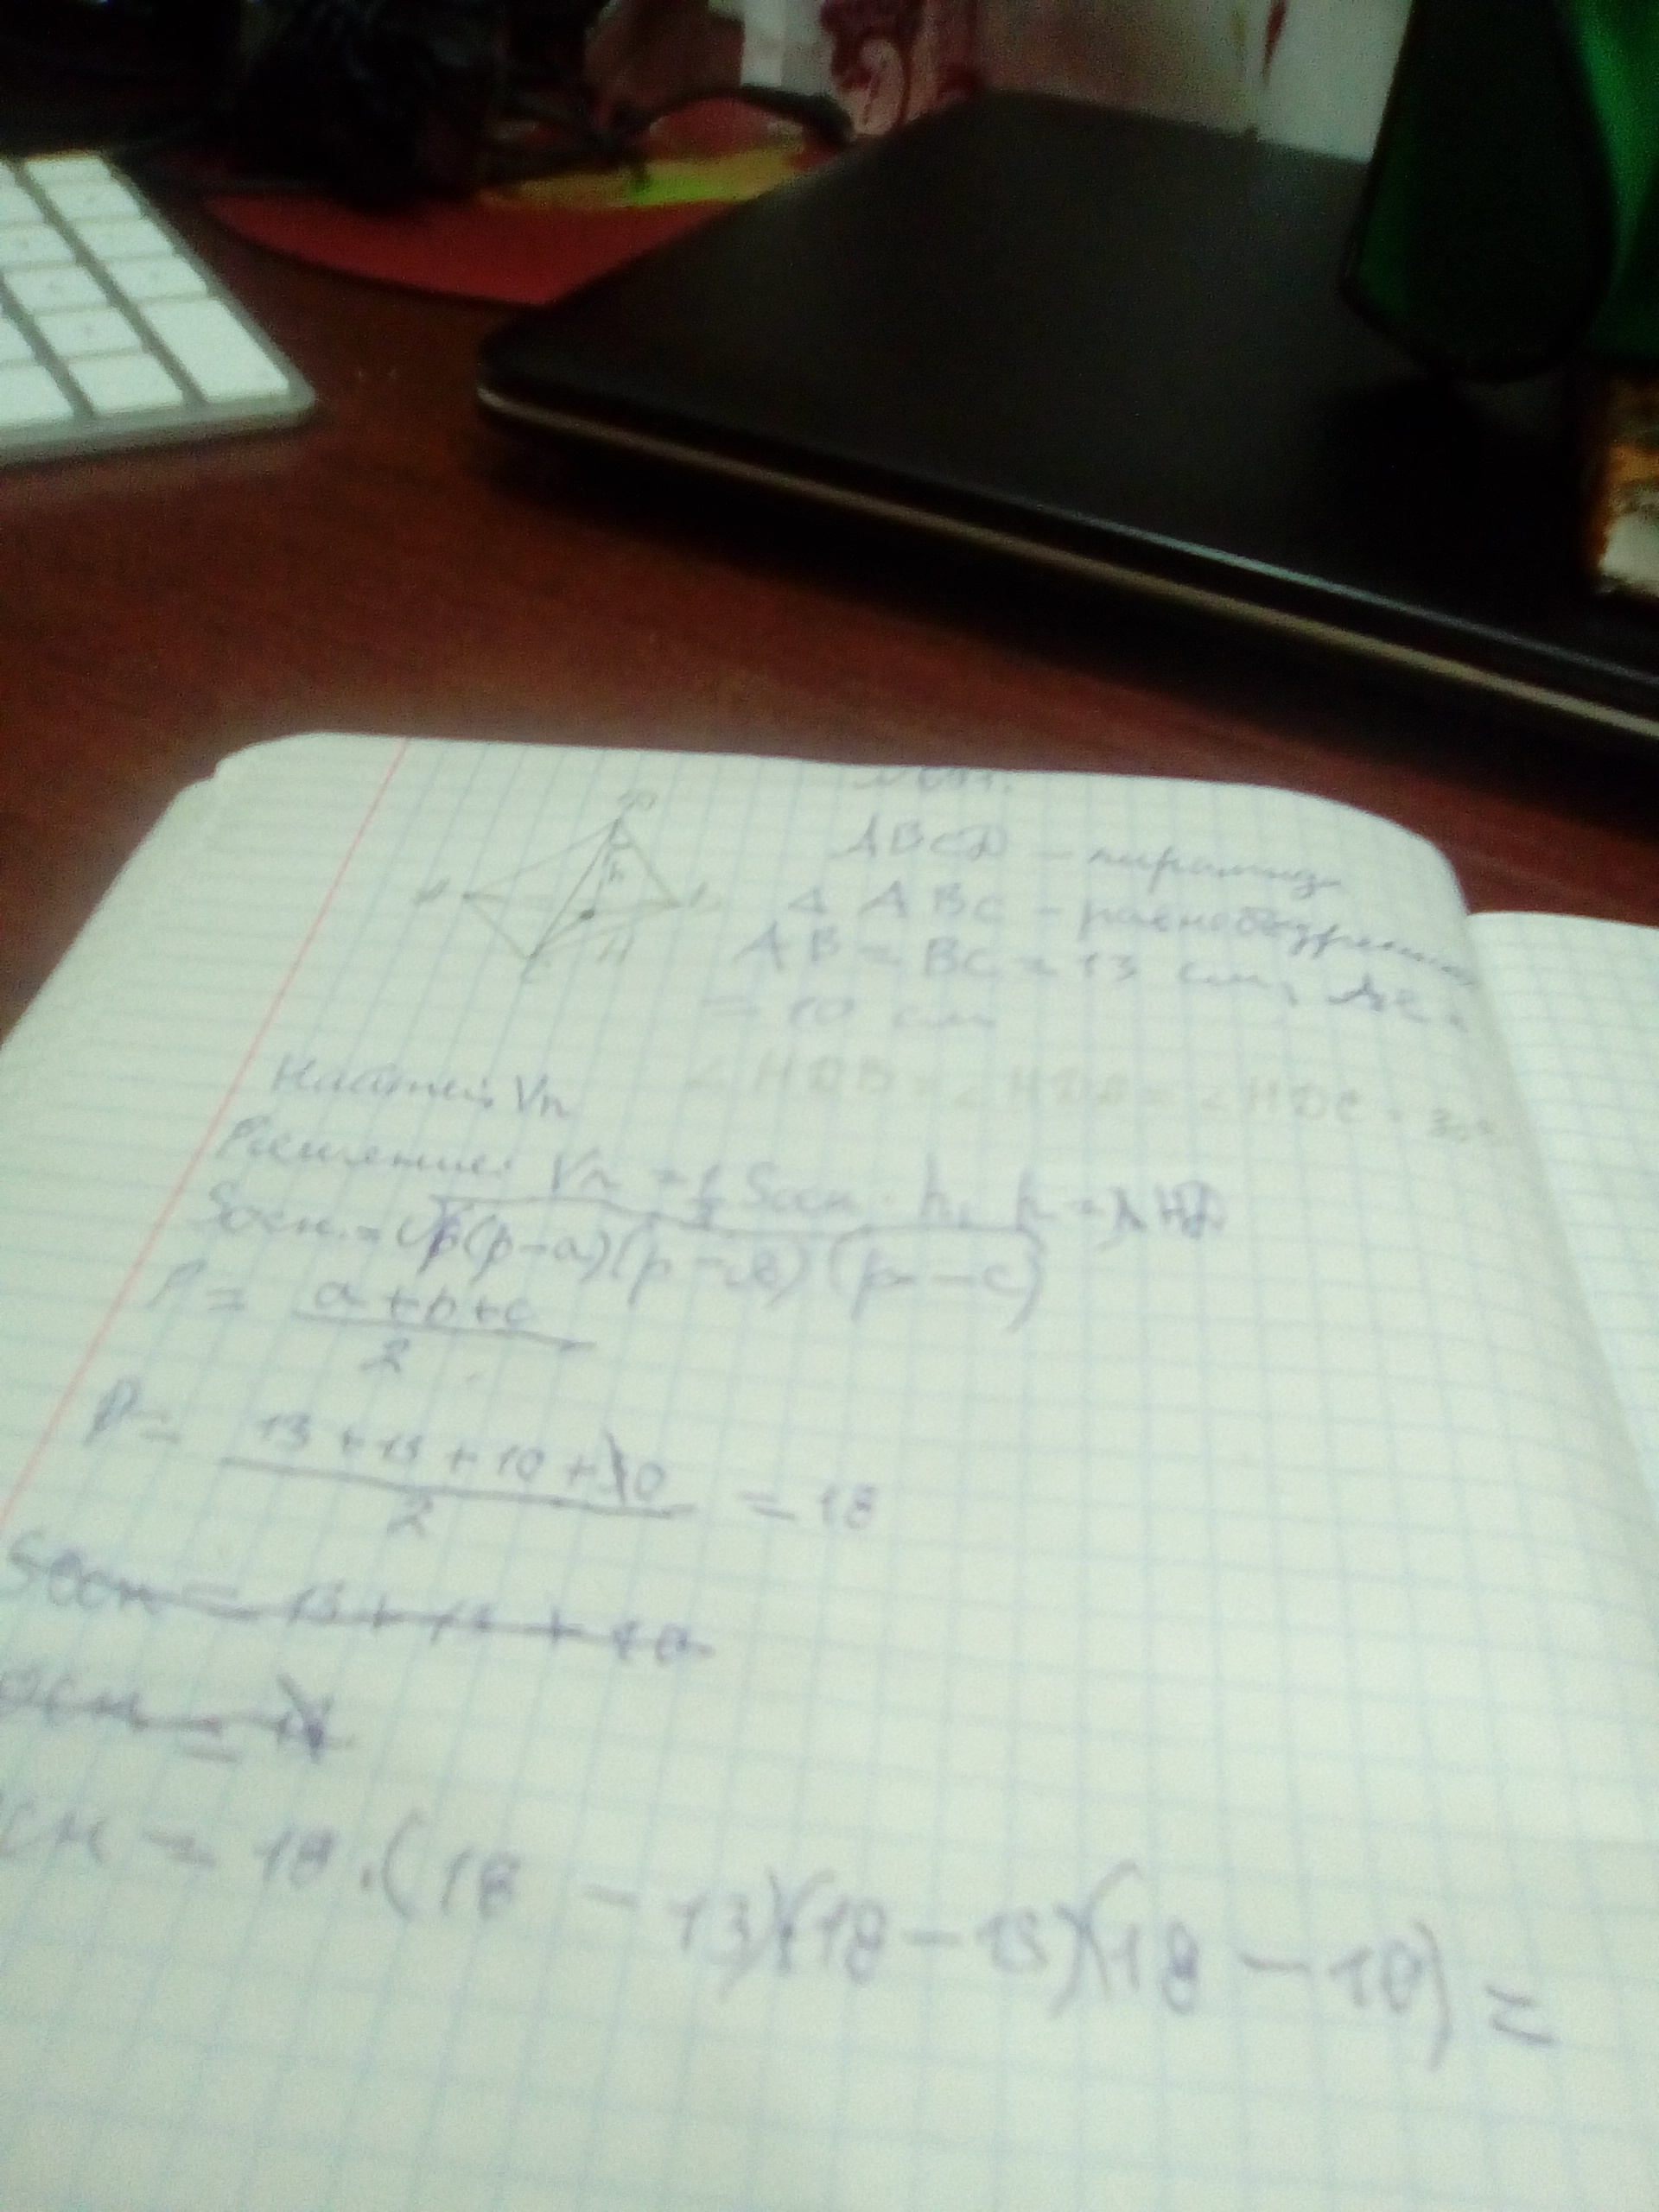 D
h
H
C
ABCD - пирамида
Δ ABC - равнобедренный
AB = BC = 13 см, AC =
= 10 см
∠HDB = ∠HDA = ∠HDC = 30°
Найти: Vп
Расшение: Vп = 1/3 Sосн · h, h = HD
Sосн. = √p(p-a)(p-b)(p-c)
P = a+b+c / 2
P = 13+13+10+10 / 2 = 18
Sосн = 13+13+10
осн =
сн = 18·(18-13)(18-13)(18-10) =